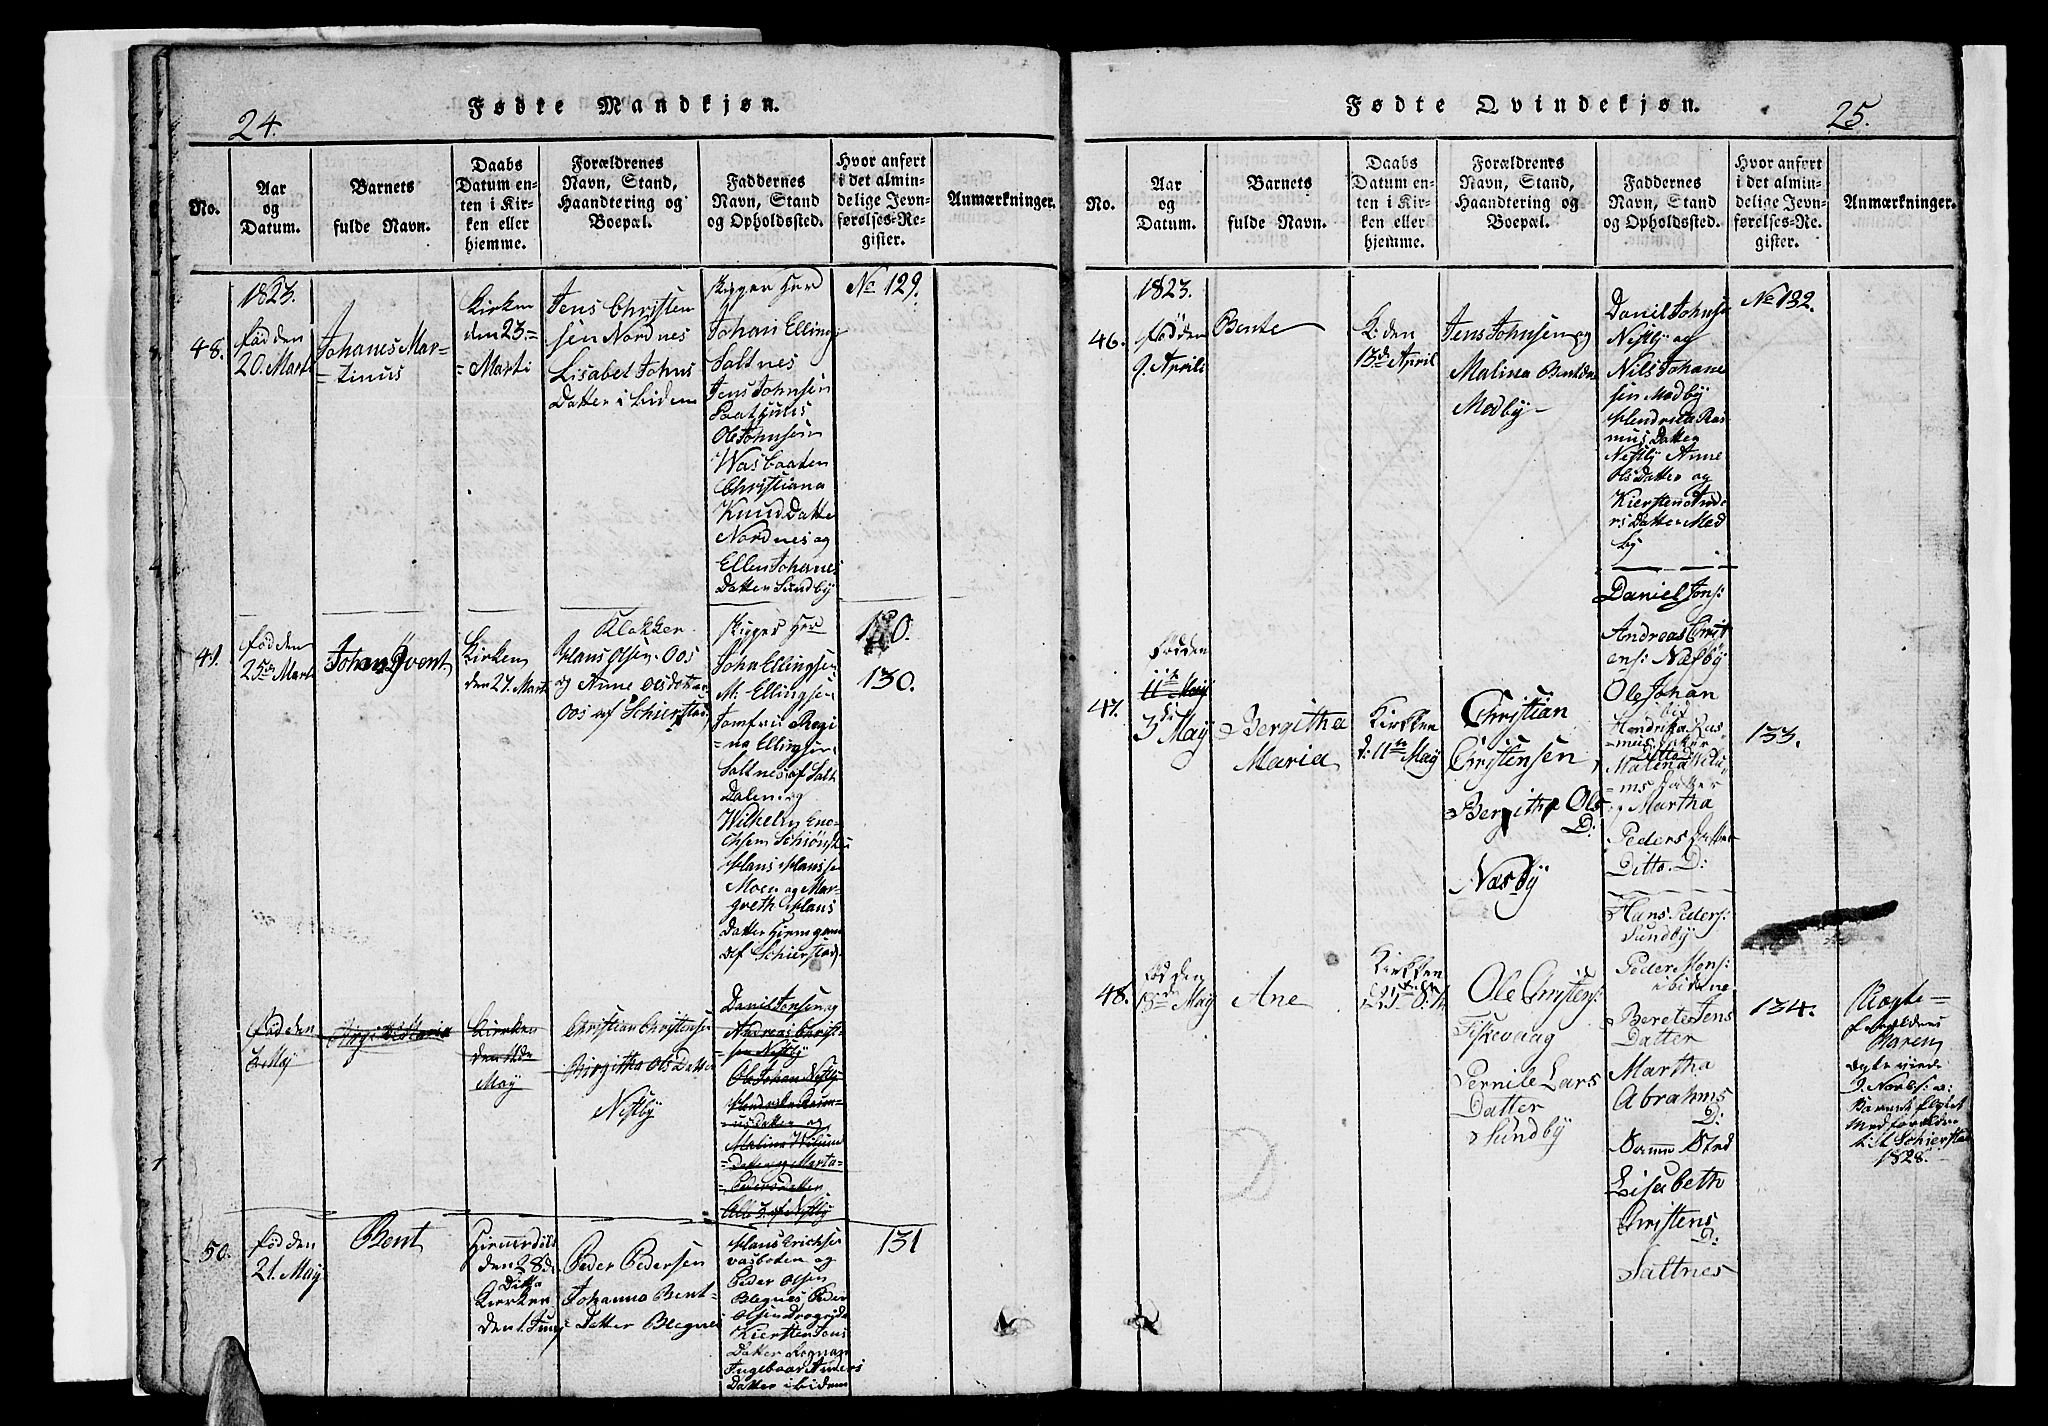 24.
Fødte Mandkjøn.
No.
Aar
og
Datum.
Barnets
fulde Navn.
Daabs
Datum en-
ten i Kir-
ken eller
hjemme.
Forældrenes
Navn, Stand,
Haandtering og
Boepæl.
Faddernes
Navn, Stand
og Opholdssted.
Hvor anført
i det almin-
delige Jevn-
førelses-Re-
gister.
Anmærkninger.
48.
1823.
Fødden
20. Marti
Johanes Mar-
=tinus
Kirken
den 23=
=Marti
Jens Christen
sen Nordnes
Lisabet Johns
Datter ibidem
Skipper Herd
Johan Elling
Saltnes
Jens Johnsen
Ole Johnsen
Wasbaaten
Christiana
Knud Datte
Nordnes og
Ellen Johanes
Datter Sundby
No 129.
49.
Fødden
25de Marti
Johan Event
Kirken
den 27. Marti
Klokker
Hans Olsen Oos
og Anne Olsdatter
Oos af Schierstad
Skipper Her
John Ellingsen
M: Ellingsen
Jomfru Regi
=na Ellingsen
Saltnes af Salt
Dalen og
Wilhelm Eno-
chsen
Hans Hanssen
Moen og Mar-
greth Hans
Datter
af Schierstad
130.
Fødden
3 May
Kirken
den 11de
May
Christian Christensen
Birgitha Ols Datter
Nestby
Daniel Jensen og
Andreas Christ-
sen Nestby
Ole Johan Nestby
Malina Willum
Datter og Marta
Pedersdatter
Alle 3. af Nestby
50.
Fødden
21. May
Bent
den 28de
Ditto
Kirken
den 1. Juny
Peder Pedersen
Johanna Bent-
Datter Blegnes
Hans Erichse
vasboten og
Peder Olsen
Blegnes Peder
Olsen
Kiersten Jens
Datter Rognan
Ingeboar Anders
Datter ibidem
131
Fødte Qvindekjøn.
25.
No.
Aar
og
Datum.
Barnets
fulde Navn.
Daabs
Datum en-
ten i Kir-
ken eller
hjemme.
Forældrenes
Navn, Stand,
Haandtering og
Boepæl.
Faddernes
Navn, Stand
og Opholdssted.
Hvor anført
i det almin-
delige Jevn-
førelses-Re-
gister.
Anmærkninger.
46.
1823.
Fødden
9. April
Bente
K: den
13de April
Jens Johnsen og
Malina Bentdr
Medby
Daniel Johnse
Nestby og
Nils Johane
sen Medby
Hendrikka Ras
mus Datter
Nestby Anne
Ols Datter og
Kiersten Ande
rs Datter Med
by
No 132.
47.
Fødden
11te May
3de May
Bergitha
Maria
Kirkken
d: 11te May
Christian
Christensen
Bergitha Ols
D:
Næsby
Daniel Jons:
Andreas Crist
ens: Næsby
Ole Johan
ibid
Hendrika Ras
=mus Datter
Ditto
Malena Wilu
=ms Datter
Martha
Peders Datter
Ditto. D:
133.
48.
Fødden
18de May
Ane
Kirkken
Ole Cristens:
Fiskevaag
Pernile Lars
Datter
Sundby
Hans Peders:
Sundby
Peder Mons:
ibidene
Berete Jens
Datter
Martha
Abrahms
D:
Samme Sted
Lisabeth
Christens
D:
Saltnes
134.
Ægte
forældrene
Maren
med forældrene
til Schierstad
1828.